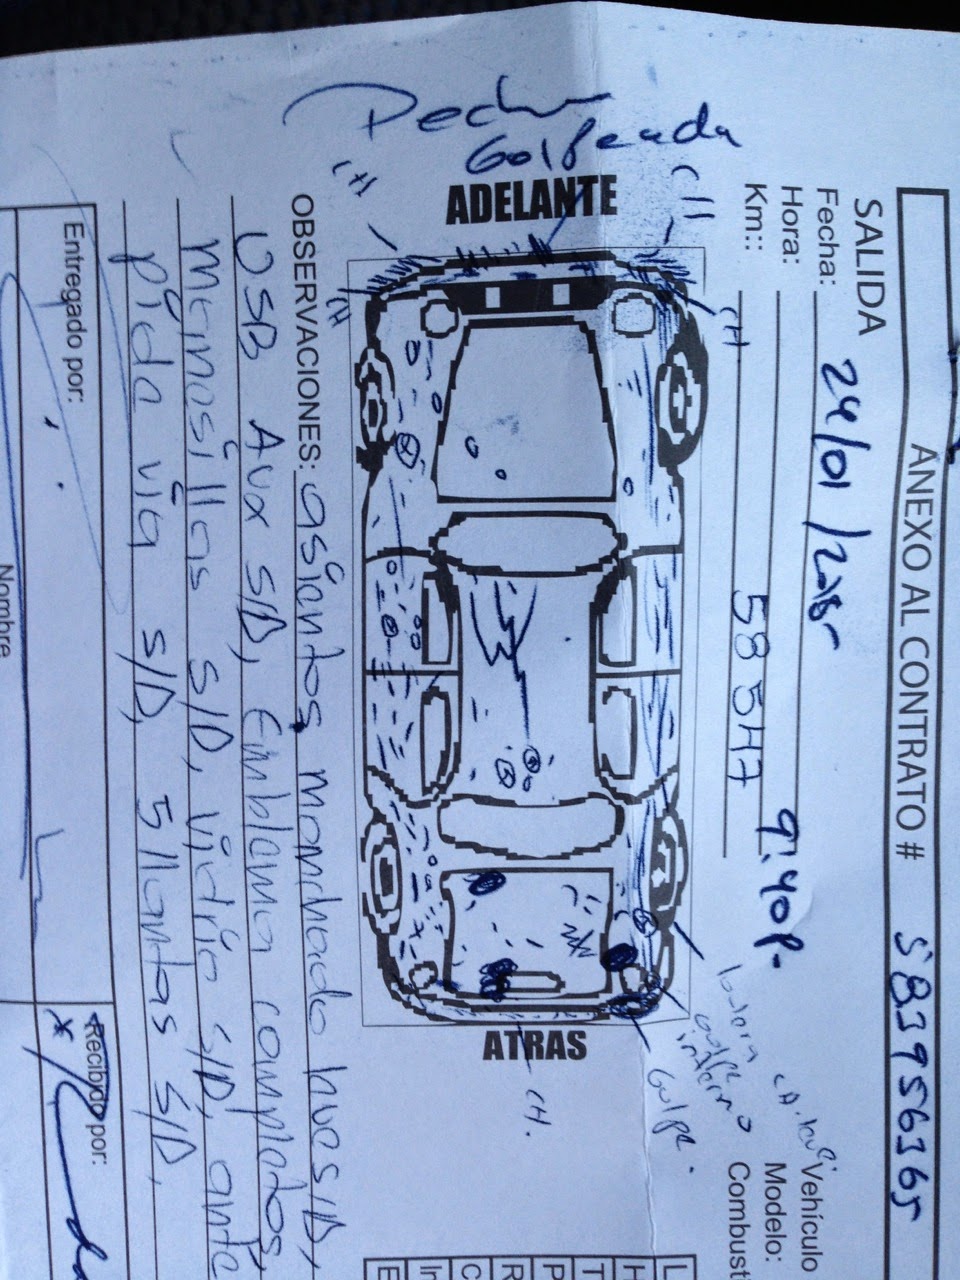 ANEXO AL CONTRATO # S83956365
SALIDA
Fecha: 24/01/2015
Hora: 9:40p.
Km:: 58547
Vehículo
Modelo:
Combust
Golpeada
ADELANTE
CH
CH
CH
CH
ATRAS
CH.
golpe
interno
Golpe.
OBSERVACIONES: asientos manchado hue s/D,
USB Aux s/D, Emblema completos,
Maginosillas s/D, vidrio s/D, ante
pida via s/D, 5 llantas s/D.
Entregado por:
Recibido por:
x
Nombre
L
H
T
P
R
C
In
E